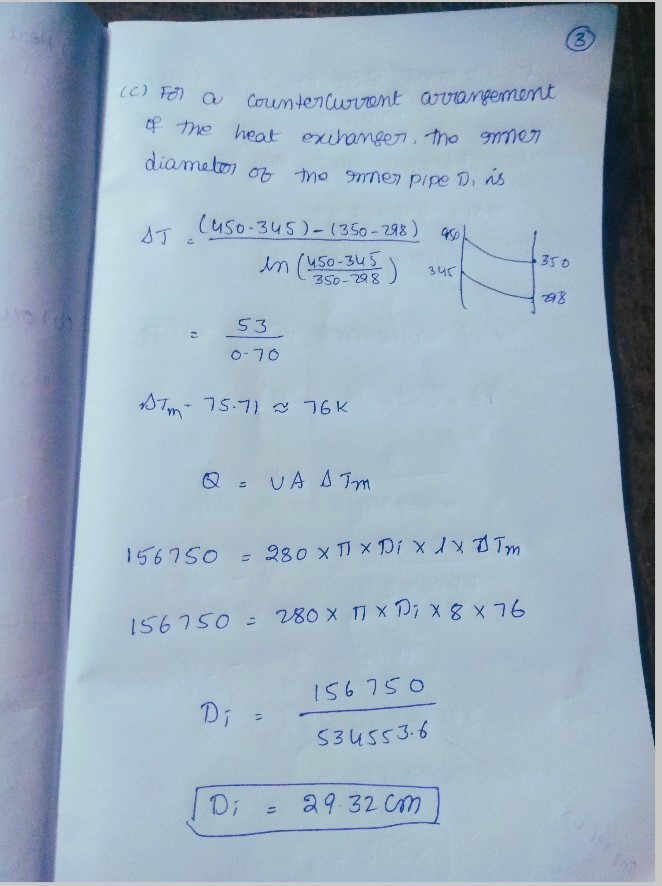 3
(C) For a countercurrent arrangement
of the heat exchanger, the inner
diameter of the inner pipe Di is
ΔT = (450-345) - (350-298)
ln (450-345 / 350-298)
450
350
345
298
= 53 / 0.70
ΔTm - 75.71 ≈ 76K
Q = UA ΔTm
156750 = 280 × π × Di × l × ΔTm
156750 = 280 × π × Di × 8 × 76
Di = 156750 / 534553.6
Di = 29.32 cm